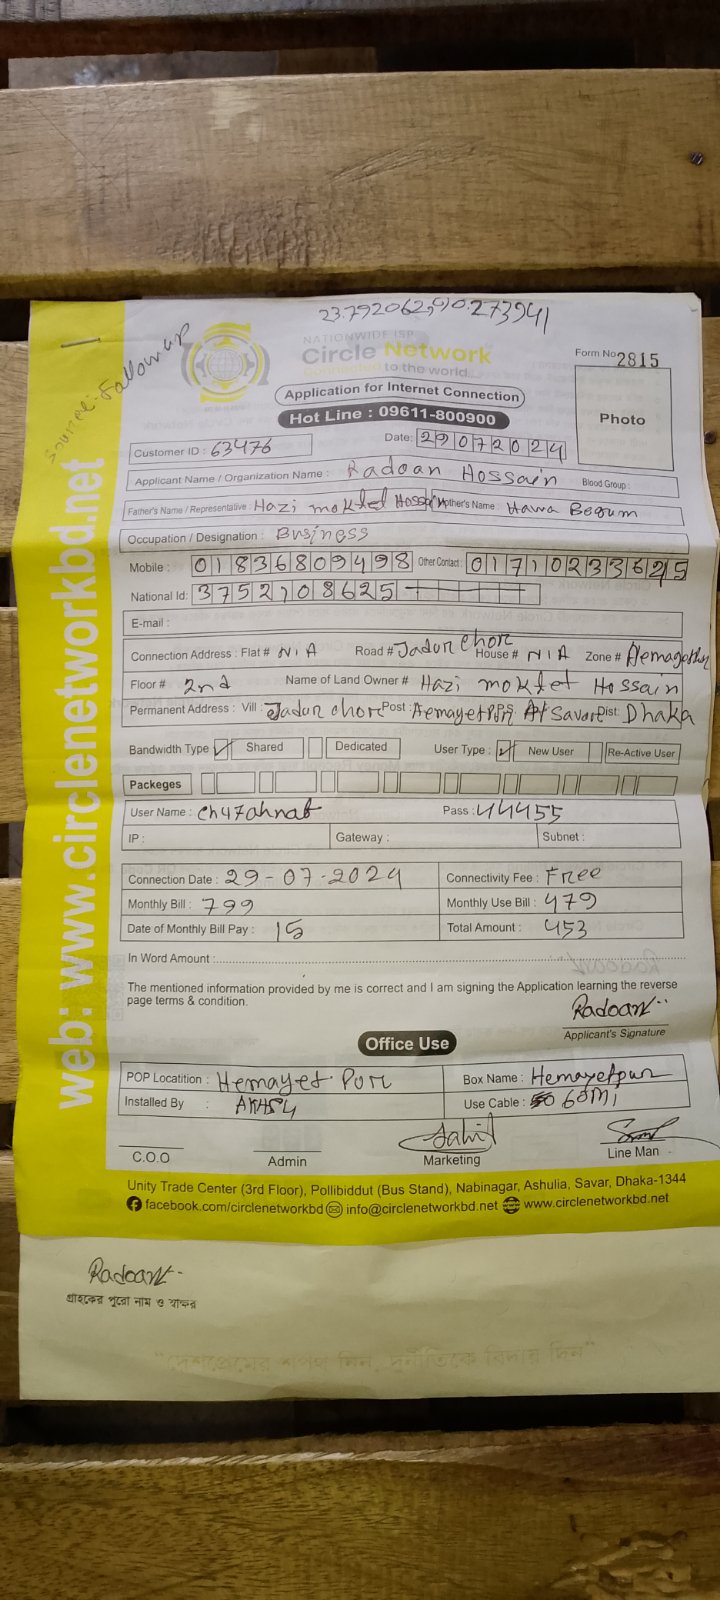 23.792062,90.273941
Source: Followup
NATIONWIDE ISP
Circle Network
Connected to the world...
Form No 2815
Application for Internet Connection
Photo
Hot Line : 09611-800900
Customer ID : 63476
Date: 29072024
Applicant Name / Organization Name : Radoan Hossain Blood Group :
Father's Name / Representative : Hazi moklet Hossain Mother's Name : Hawa Begum
Occupation / Designation : Business
Mobile : 01836809498 Other Contact : 01710233625
National Id: 3752108625
E-mail :
Connection Address : Flat # N/A Road # Jadur Chore House # N/A Zone #
Floor # 2nd Name of Land Owner # Hazi moklet Hossain
Permanent Address : Vill : Jadur chore Post : Hemayetpur Savar Dist: Dhaka
Bandwidth Type Shared Dedicated User Type : New User Re-Active User
Packeges
User Name : Ch47ahnaf Pass : 44455
IP : Gateway : Subnet :
Connection Date : 29-07-2024 Connectivity Fee : Free
Monthly Bill : 799 Monthly Use Bill : 479
Date of Monthly Bill Pay : 15 Total Amount : 453
In Word Amount :
The mentioned information provided by me is correct and I am signing the Application learning the reverse
page terms & condition.
Radoan
Applicant's Signature
Office Use
POP Locatition : Hemayet Pur Box Name : Hemayetpur
Installed By : Use Cable : 60Mi
Jahid
C.O.O Admin Marketing Line Man
Unity Trade Center (3rd Floor), Pollibiddut (Bus Stand), Nabinagar, Ashulia, Savar, Dhaka-1344
facebook.com/circlenetworkbd info@circlenetworkbd.net www.circlenetworkbd.net
web: www.circlenetworkbd.net
Radoan
গ্রাহকের পুরো নাম ও স্বাক্ষর
"দেশপ্রেমের শপথ নিন, দুর্নীতিকে বিদায় দিন"